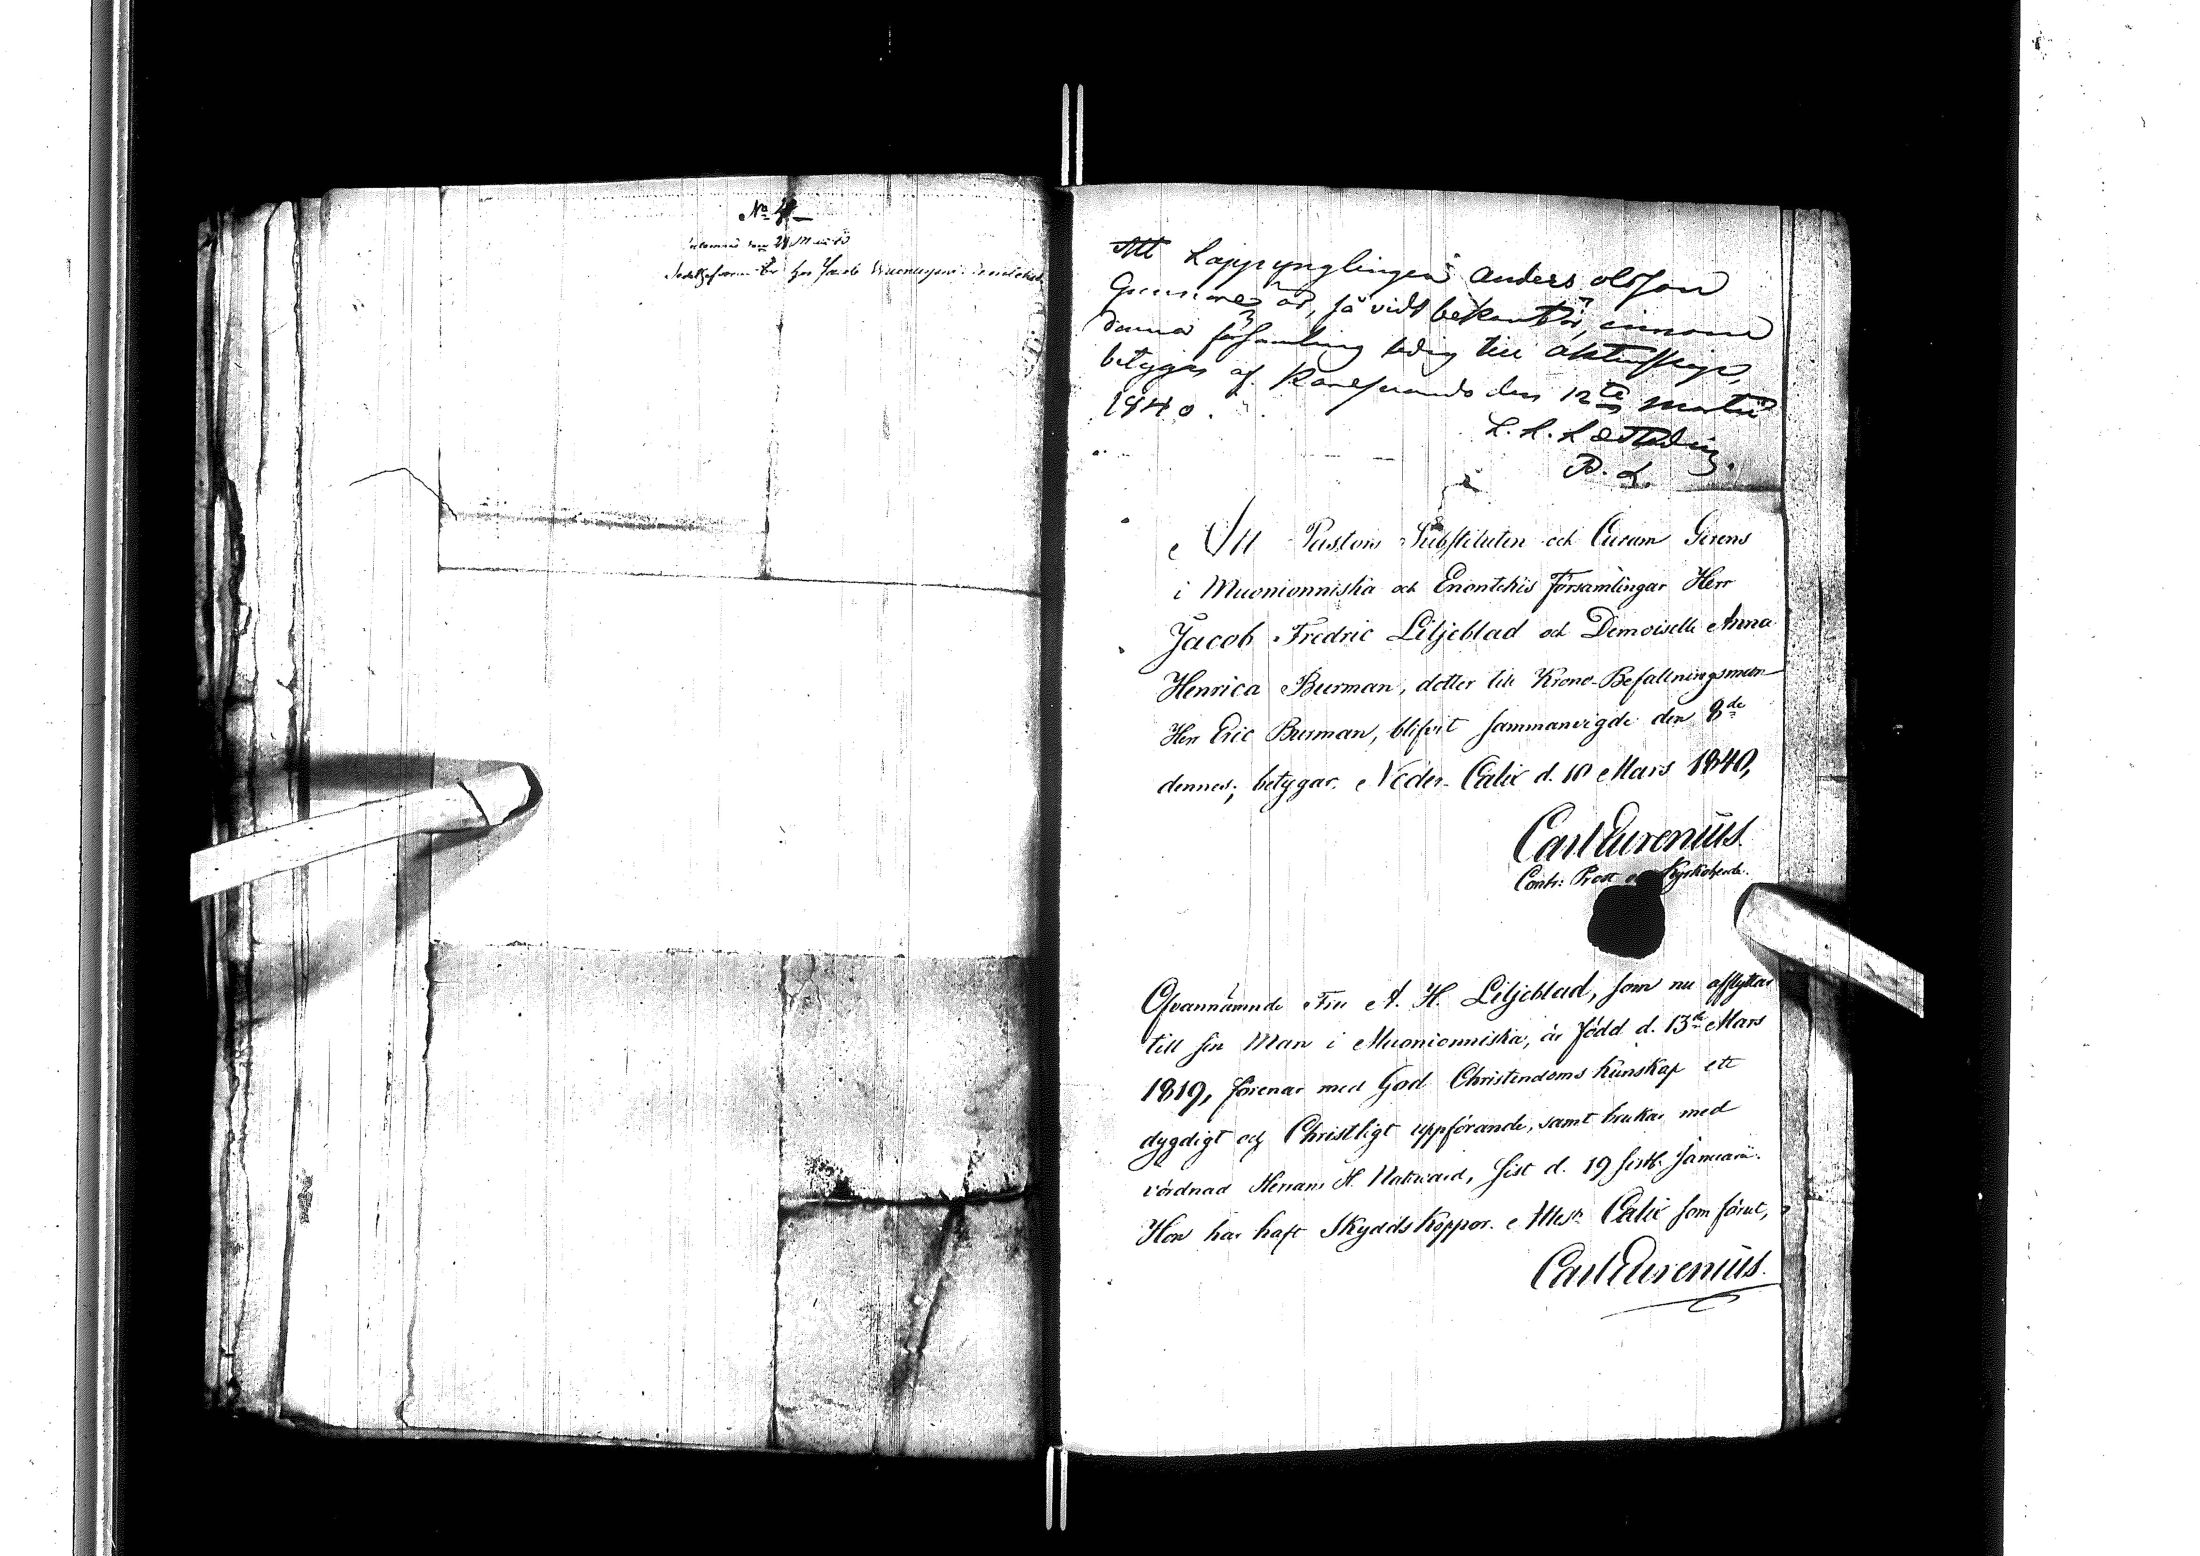 No 4
Inlemnad den 24 Maii 40
för Jacob
Att Lappynglingen Anders Olsson
är, så vidt bekant är, innom
denna församling ledig till äktenskap,
betygas af Karesuando den 12te Martii
1840.
L. L. Læstadius.
P. L.
Att Pastors Substituten och Curam Gerens
i Muonionniska och Enontekis Församlingar Herr
Jacob Fredric Liljeblad och Demoiselle Anna
Henrica Burman, dotter till Krono-Befallningsman
Herr Eric Burman, blifvit sammanvigde den 8de
dennes; betygar. Neder-Calix d. 10 Mars 1840,
Carl Eurenius.
Contr: Prost och Kyrkoherde.
Ofvannämnde Fru A. H. Liljeblad, som nu afflyttar
till sin Man i Muonionniska, är född d. 13de Mars
1819, förenar med God Christendoms kunskap ett
dygdigt och Christligt uppförande, samt brukar med
vördnad Herrans H. Nattvard, sist d. 19 sistl. Januarii.
Hon har haft Skyddskoppor. Attest: Calix som förut,
Carl Eurenius.